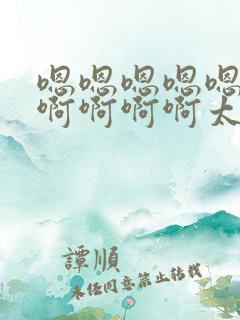 嗯嗯嗯嗯嗯
啊啊啊啊太
譚順
未经同意禁止转载